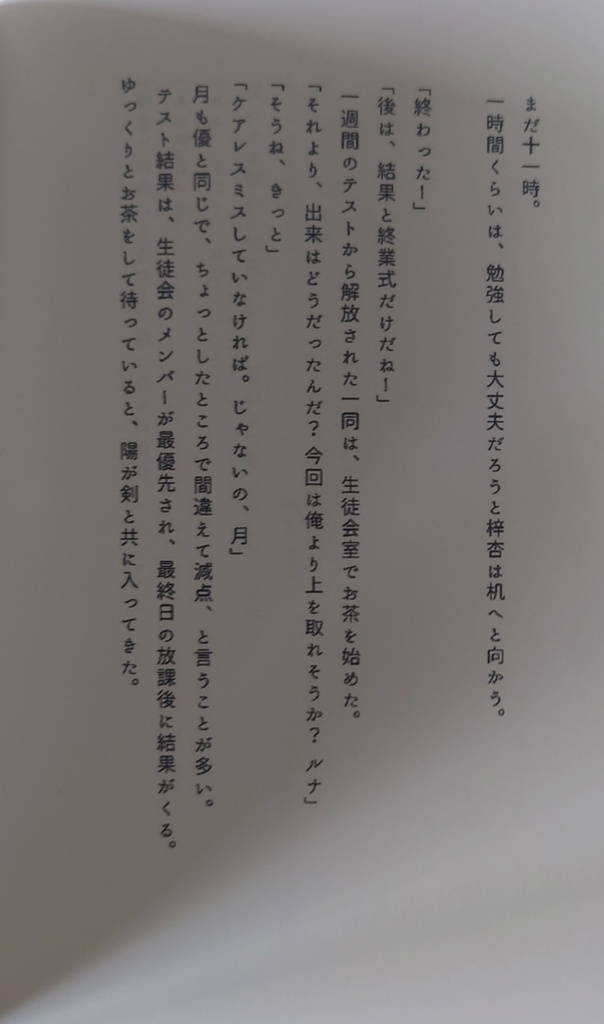 まだ十一時。
一時間くらいは、勉強しても大丈夫だろうと梓杏は机へと向かう。
「終わったー」
「後は、結果と終業式だけだねー」
一週間のテストから解放された一同は、生徒会室でお茶を始めた。
「それより、出来はどうだったんだ？今回は俺より上を取れそうか？　ルナ」
「そうね、きっと」
「ケアレスミスしていなければ。じゃないの、月」
月も優と同じで、ちょっとしたところで間違えて減点、と言うことが多い。
テスト結果は、生徒会のメンバーが最優先され、最終日の放課後に結果がくる。
ゆっくりとお茶をして待っていると、陽が剣と共に入ってきた。